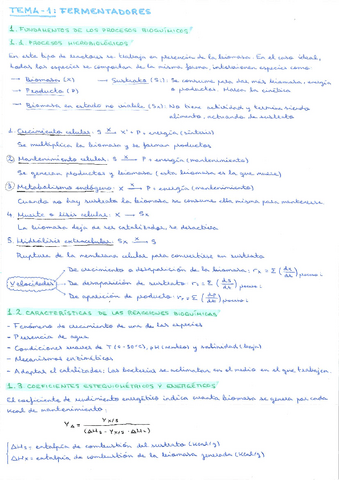 TEMA-1: FERMENTADORES
1. FUNDAMENTOS DE LOS PROCESOS BIOQUÍMICOS
1.1 PROCESOS MICROBIOLÓGICOS
En este tipo de reactores se trabaja en presencia de la biomasa. En el caso ideal,
todas las especies se comportan de la misma forma, intervienen especies como
→ Biomasa (X) → Sustrato (S): Se consume para dar más biomasa, energía
→ Producto (P) o productos. Hacen la
→ Biomasa en estado no viable (Sx): No tiene actividad y termina siendo
alimento, actuando de sustrato
1. Crecimiento celular: S →x X + P + energía (síntesis)
Se multiplica la biomasa y se forman productos
2) Mantenimiento celular: S →x P + energía (mantenimiento)
Se generan productos y biomasa (esta biomasa es la que nueva)
3) Metabolismo endógeno: X → P + energía (mantenimiento)
Cuando no hay sustrato la biomasa se consume ella misma para mantenerse
4. Muerte o lisis celular: X → Sx
La biomasa deja de ser catalizador, se desactiva
5. Hidrólisis extracelular: Sx →x S
Ruptura de la membrana celular para convertirse en sustrato
Velocidades
De crecimiento o desaparición de la biomasa: rx = Σ (dx/dt) proceso i
De desaparición de sustrato: rs = Σ (ds/dt) proceso i
De aparición de producto: rp = Σ (dp/dt) proceso i
1.2 CARACTERÍSTICAS DE LAS REACCIONES BIOQUÍMICAS
- Fenómeno de crecimiento de una de las especies
- Presencia de agua
- Condiciones suaves de T (0-30°C), pH (neutros) y salinidad (baja)
- Mecanismos enzimáticos
- Adaptar el catalizador: Las bacterias se aclimatan en el medio en el que trabajan.
1.3 COEFICIENTES ESTEQUIOMÉTRICOS Y ENERGÉTICOS
El coeficiente de rendimiento energético indica cuanta biomasa se genera por cada
kcal de mantenimiento:
YΔ = Yx/s / (ΔHs - Yx/s · ΔHx)
ΔHs = entalpía de combustión del sustrato (kcal/g)
ΔHx = entalpía de combustión de la biomasa generada (kcal/g)